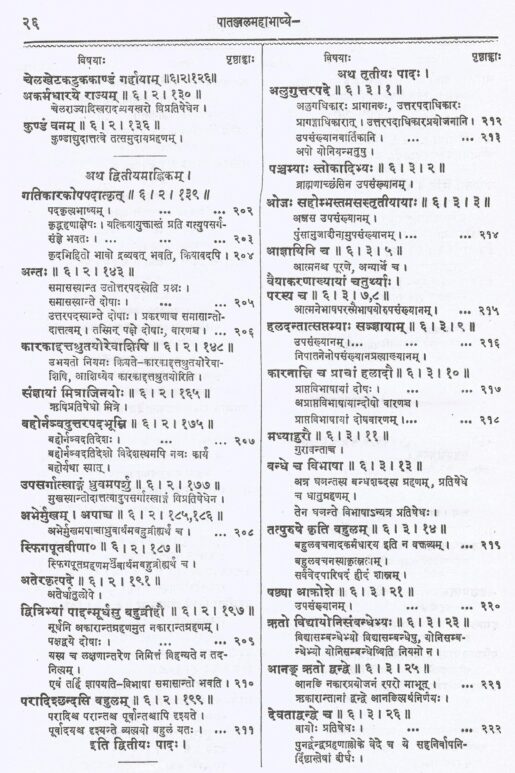 २६
पातञ्जलमहाभाष्ये—
विषयाः पृष्ठाङ्काः
चेलखेटकटुककाण्डं गर्हायाम् ॥६।२।१२६॥
अकर्मधारये राज्यम् ॥ ६ । २ । १३० ॥
चेलराज्यादिस्वरादव्ययस्वरो विप्रतिषेधेन ।
कुण्डं वनम् ॥ ६ । २ । १३६ ॥
कुण्डाद्युदात्तत्वे तत्समुदायग्रहणम् ।
अथ द्वितीयमाह्निकम् ।
गतिकारकोपपदात्कृत् ॥ ६ । २ । १३९ ॥
पदकृत्यभाष्यम् । ... ... २०२
कृद्ग्रहणाक्षेपः । यत्क्रियायुक्तास्तं प्रति गत्युपसर्ग-
संज्ञे भवतः । ... ... ... २०३
कृदभिहितो भावो द्रव्यवत् भवति, क्रियावदपि । २०४
अन्तः ॥ ६ । २ । १४३ ॥
समासस्यान्त उतोत्तरपदस्येति प्रश्नः ।
समासस्यान्ते दोषाः । ... ... २०५
उत्तरपदस्यान्ते दोषाः । प्रकरणाच्च समासान्तो-
दात्तत्वम् । तस्मिन् पक्षे दोषः, वारणञ्च । ... २०६
कारकाद्दत्तश्रुतयोरेवाशिषि ॥ ६ । २ । १४८ ॥
उभयतो नियमः क्रियते-कारकाद्दत्तश्रुतयोरेवा-
शिषि, आशिष्येव कारकाद्दत्तश्रुतयोरिति ।
संज्ञायां मित्राजिनयोः ॥ ६ । २ । १६५ ॥
ऋषिप्रतिषेधो मित्रे ।
बहोर्नञ्वदुत्तरपदभूम्नि ॥ ६ । २ । १७५ ॥
बहोर्नञ्वदतिदेशः । ... ... २०७
बहोर्नञ्वदतिदेशो विदेशस्थमपि नञः कार्यं
बहोर्यथा स्यात् ।
उपसर्गात्स्वाङ्गं ध्रुवमपर्शु ॥ ६ । २ । १७७ ॥
मुखस्यान्तोदात्तत्वादुपसर्गात्स्वाङ्गं विप्रतिषेधेन ।
अभेर्मुखम् । अपाच्च ॥ ६ । २ । १८५,१८६ ॥
अभेर्मुखमपाच्चाध्रुवार्थमबहुव्रीह्यर्थं च । ... २०८
स्फिगपूतवीणा० ॥ ६ । २ । १८७ ॥
स्फिगपूतग्रहणमध्रुवार्थमबहुव्रीह्यर्थं च ।
अतेरकृत्पदे ॥ ६ । २ । १९१ ॥
अतेर्धातुलोपे ।
द्वित्रिभ्यां पाद्दन्मूर्धसु बहुव्रीहौ ॥ ६ । २ । १९७ ॥
मूर्धनि अकारान्तग्रहणमुत नकारान्तग्रहणम् ।
पक्षद्वये दोषाः । ... ... २०९
यस्य च लक्षणान्तरेण निमित्तं विहन्यते न तद-
नित्यम् ।
एवं तर्हि ज्ञापयति-विभाषा समासान्तो भवति । २१०
परादिश्छन्दसि बहुलम् ॥ ६ । २ । १९९ ॥
परादिश्च परान्तश्च पूर्वान्तश्चापि दृश्यते ।
पूर्वादयश्च दृश्यन्ते व्यत्ययो बहुलं यतः । ... २११
इति द्वितीयः पादः ।
विषयाः पृष्ठाङ्काः
अथ तृतीयः पादः ।
अलुगुत्तरपदे ॥ ६ । ३ । १ ॥
अलुगधिकारः प्रागानङः, उत्तरपदाधिकारः
प्रागङ्गाधिकारात् । उत्तरपदाधिकारप्रयोजनानि । २१२
उपसंख्यानवार्तिकानि । ... ... २१३
अपो योनियन्मतुषु ।
पञ्चम्याः स्तोकादिभ्यः ॥ ६ । ३ । २ ॥
ब्राह्मणाच्छंसिन उपसंख्यानम् ।
ओजः सहोम्भस्तमसस्तृतीयायाः ॥ ६ । ३ । ३ ॥
अञ्जस उपसंख्यानम् ।
पुंसानुजादीनामुपसंख्यानम् । ... ... २१४
आज्ञायिनि च ॥ ६ । ३ । ५ ॥
आत्मनश्च पूरणे, अन्यार्थे च ।
वैयाकरणाख्यायां चतुर्थ्याः ।
परस्य च ॥ ६ । ३ । ७,८ ॥
आत्मनेभाषपरस्मैभाषयोरुपसंख्यानम् । ... २१५
हलदन्तात्सप्तम्याः सञ्ज्ञायाम् ॥ ६ । ३ । ९ ॥
उपसंख्यानम् । ... ... ... २१६
निपातनेनोपसंख्यानप्रत्याख्यानम् ।
कारनाम्नि च प्राचां हलादौ ॥ ६ । ३ । १० ॥
प्राप्तविभाषायां दोषः । ... ... २१७
अप्राप्तविभाषायान्दोषो वारणञ्च ।
प्राप्तविभाषायां दोषवारणम् । ... ... २१८
मध्याद्गुरौ ॥ ६ । ३ । ११ ॥
गुरावन्ताच्च ।
बन्धे च विभाषा ॥ ६ । ३ । १३ ॥
अत्र घञन्तस्य बन्धशब्दस्य ग्रहणम्, प्रतिषेधे
च धातुग्रहणम् ।
तेन घञन्ते विभाषाऽन्यत्र प्रतिषेधः ।
तत्पुरुषे कृति बहुलम् ॥ ६ । ३ । १४ ॥
बहुलवचनादकर्मधारय इति न वक्तव्यम् । ... २१९
बहुलवचनस्याकृत्स्नत्वम् ।
सर्ववेदपारिषदं हीदं शास्त्रम् ।
षष्ठ्या आक्रोशे ॥ ६ । ३ । २१ ॥
उपसंख्यानम् । ... ... ... २२०
ऋतो विद्यायोनिसंबन्धेभ्यः ॥ ६ । ३ । २३ ॥
विद्यासम्बन्धेभ्यो विद्यासम्बन्धेषु, योनिसम्ब-
न्धेभ्यो योनिसम्बन्धेष्विति नियमो न ।
आनङ् ऋतो द्वन्द्वे ॥ ६ । ३ । २५ ॥
आनङि नकारप्रयोजनं रपरो माभूत् । ... २२१
ऋकारान्तानां द्वन्द्वे आनङित्यर्थनिर्णयः ।
देवताद्वन्द्वे च ॥ ६ । ३ । २६ ॥
वायोः प्रतिषेधः । ... ... २२२
पुनर्द्वन्द्वग्रहणाल्लोके वेदे च ये सहनिर्वापनि-
र्दिष्टास्तेषां दीर्घः ।